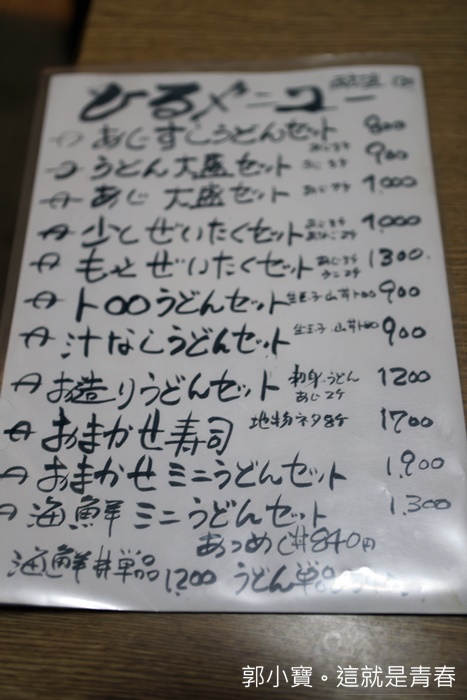 ひるメニュー
あじすしうどんセット 800
うどん大盛セット 900
あじ 大盛セット 1,000
少しぜいたくセット 1,000
もっとぜいたくセット 1300
トロロうどんセット 生玉子 山芋トロロ 900
汁なしうどんセット 生玉子 山芋トロロ 900
お造りうどんセット 刺身、うどん あじ2ケ 1200
おまかせ寿司 地物ネタ8ケ 1700
おまかせミニうどんセット 1,900
海鮮ミニうどんセット 1,300
あつめし丼840円
海鮮丼単品1200 うどん単品
郭小寶。這就是青春